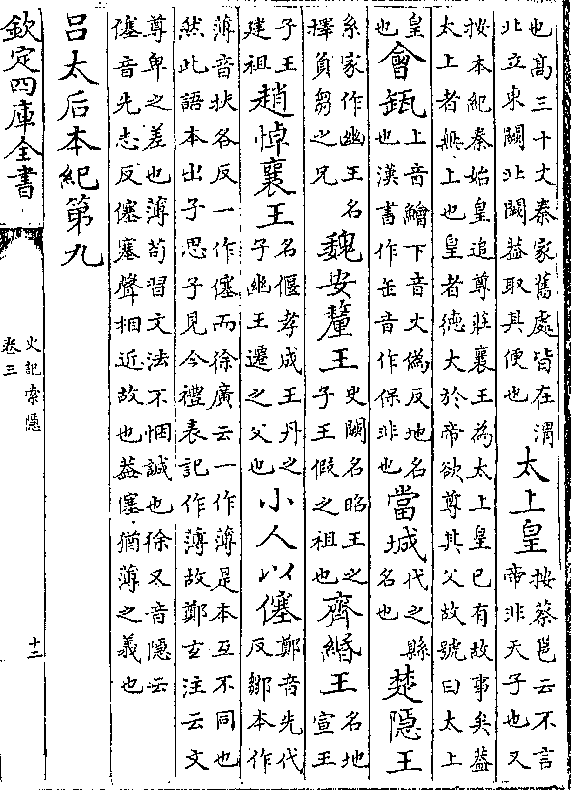 也高三十丈秦家舊處皆在渭
北立東闕北闕蓋取其便也
太上皇
按蔡邕云不言
帝非天子也又
按本紀秦始皇追尊莊襄王為太上皇已有故事矣蓋
太上者無上也皇者德大於帝欲尊其父故號曰太上
皇
也
會缻
上音鱠下音丈偽反地名
也漢書作缶音作保非也
當城
代之縣
名也
楚隱王
系家作幽王名
擇負芻之兄
魏安釐王
史闕名昭王之
子王假之祖也
齊緡王
名地
宣王
子王
建祖
趙悼襄王
名偃孝成王丹之
子幽王遷之父也
小人以僿
鄭音先代
反鄒本作
薄音扶各反一作僿而徐廣云一作薄是本互不同也
然此語本出子思子見今禮表記作薄故鄭玄注云文
尊卑之差也薄苟習文法不悃誠也徐又音隱云
僿音先志反僿塞聲相近故也蓋僿猶薄之義也
呂太后本紀第九
欽定四庫全書
史記索隱
卷三
十二